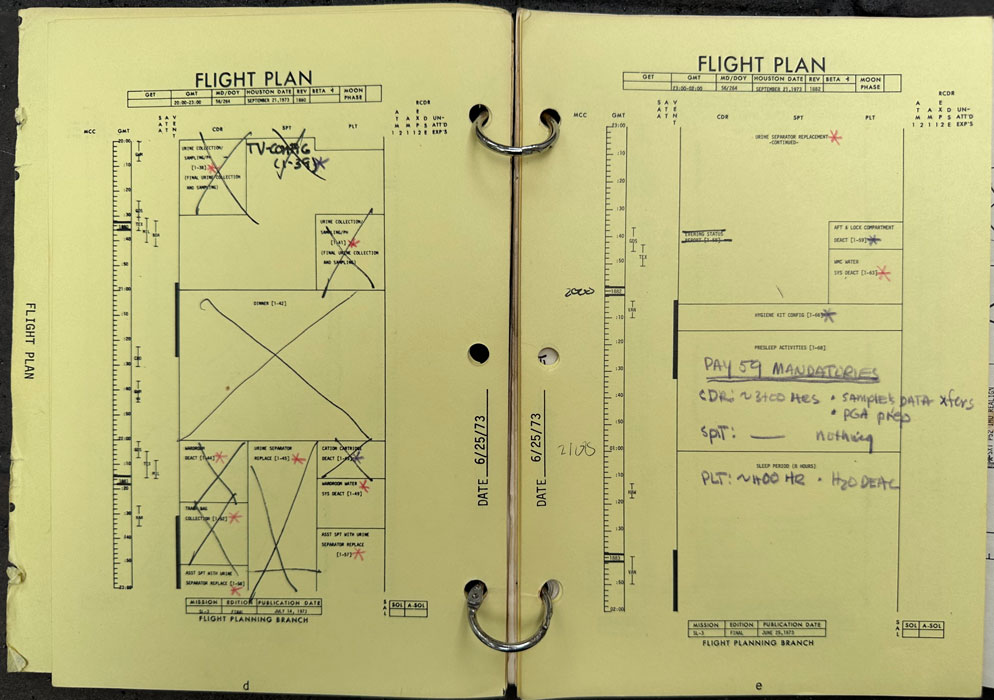 FLIGHT PLAN
GET GMT MD/DOY HOUSTON DATE REV BETA MOON PHASE
20:00-23:00 56/264 SEPTEMBER 21,1973 1880
RCDR
MCC GMT CDR SPT PLT
UN-
ATT'D
EXP'S
20:00
URINE COLLECTION/
SAMPLING/PH
[1-38]
(FINAL URINE COLLECTION
AND SAMPLING)
TV-CONFIG
(1-39)
URINE COLLECTION/
SAMPLING/PH
[1-41]
(FINAL URINE COLLECTION
AND SAMPLING)
DINNER [1-42]
WARDROOM
DEACT
URINE SEPARATOR
REPLACE [1-45]
CATION CARTRIDGE
DEACT
WARDROOM WATER
SYS DEACT [1-49]
TRASH BAG
COLLECTION
ASST SPT WITH URINE
SEPARATOR REPLACE [1-57]
ASST SPT WITH URINE
SEPARATOR REPLACE
23:00
MISSION EDITION PUBLICATION DATE
SL-3 FINAL
SAL SOL A-SOL
FLIGHT PLANNING BRANCH
d
FLIGHT PLAN
DATE 6/25/73
DATE 6/25/73
FLIGHT PLAN
GET GMT MD/DOY HOUSTON DATE REV BETA MOON PHASE
23:00-02:00 56/264 SEPTEMBER 21,1973 1882
RCDR
MCC GMT CDR SPT PLT
UN-
ATT'D
EXP'S
23:00
URINE SEPARATOR REPLACEMENT
-CONTINUED-
EVENING STATUS
REPORT
AFT & LOCK COMPARTMENT
DEACT [1-59]
WMC WATER
SYS DEACT [1-63]
2000
HYGIENE KIT CONFIG [1-66]
PRESLEEP ACTIVITIES [1-68]
DAY 59 MANDATORIES
CDR: ~3+00 HRS • SAMPLES DATA xfers
• PGA prep
SPT: — nothing
2100
SLEEP PERIOD (8 HOURS)
PLT: ~1+00 HR • H2O DEAC
02:00
MISSION EDITION PUBLICATION DATE
SL-3 FINAL
SAL SOL A-SOL
FLIGHT PLANNING BRANCH
e